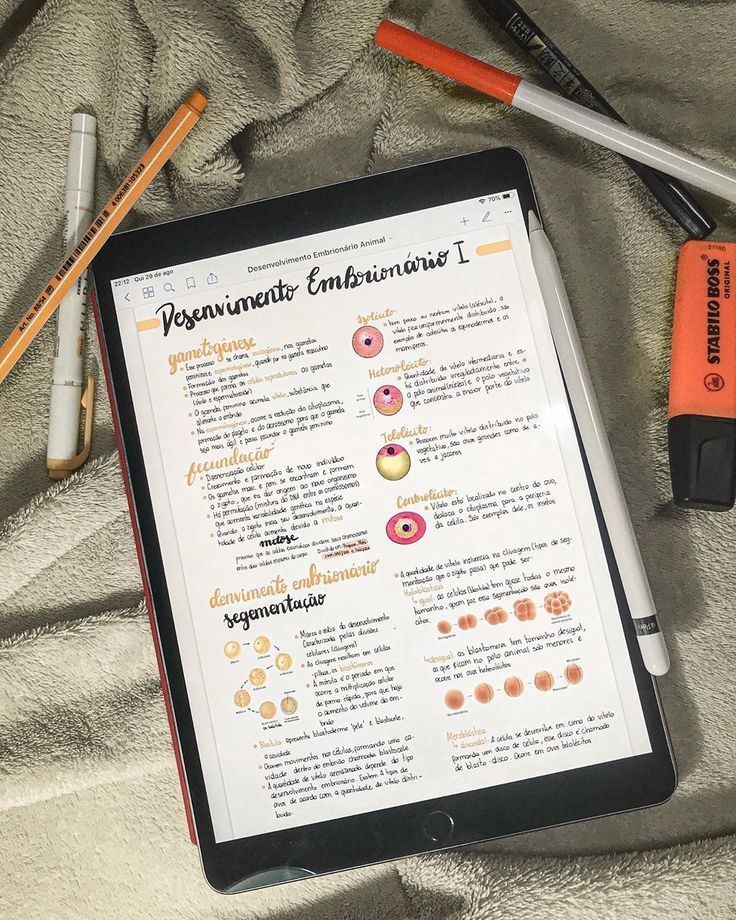 22:12 Qui 29 de ago
70%
Desenvolvimento Embrionário Animal
Desenvimento Embrionário I
gametogênese
• Esse processo se chama ovulogênese, nos gametas
femininos e espermatogênese, quando for no gameta masculino
• Formação dos gametas
• Processo que forma as células reprodutoras ou gametas
(óvulo e espermatozoide)
• O gameta feminino acumula vitelo, substância que
alimenta o embrião
• Na espermatogênese, ocorre a redução do citoplasma,
formação do flagelo e do acrossomo para que o gameta
seja mais ágil e possa fecundar o gameta feminino
fecundação
• Diferenciação celular
• Crescimento e formação de novo indivíduo
• Os gametas masc. e fem. se encontram e formam
o zigoto, que irá dar origem ao novo organismo
• Há permutação (mistura do DNA entre os cromossomos)
que aumenta variabilidade genética na espécie
• Quando o zigoto inicia seu desenvolvimento, a quan-
tidade de célula aumenta devido a mitose
mitose
processo que as células eucarióticas dividem seus cromossomos
entre duas células menores do corpo.
denvimento embrionário
segementação
• Marca o início do desenvolvimento
Caracterizada pelas divisões
celulares (clivagem)
• As clivagens resultam em células
-filhas, os blastômeros
• A mórula é o período em que
ocorre a multiplicação celular
de forma rápida, para que haja
o aumento do volume do em-
brião
• Blástula: apresenta blastoderme 'pele' e blastocele,
a cavidade
• Ocorrem movimentos nas células, formando uma ca-
vidade dentro do embrião chamada blastocele
• A quantidade de vitelo armazenada depende do tipo
desenvolvimento embrionário. Existem 4 tipos de
ovos de acordo com a quantidade de vitelo distri-
buído.
Isolécito:
• tem pouco ou nenhum vitelo (alécito), o
vitelo fica uniformemente distribuído, são
exemplo de isolécitos os equinodermos e os
mamíferos.
Heterolécito:
• Quantidade de vitelo intermediária e es-
tá distribuído irregularmente entre o
o pólo animal (núcleo) e o pólo vegetativo
que concentra a maior parte do vitelo
Telolécito:
• Possuem muito vitelo distribuído no polo
vegetativo, são ovos grandes como de a-
ves e jacarés
Centrolécito:
• Vitelo está localizado no centro do ovo,
desloca o citoplasma para a periferia
da célula. São exemplos dele, os insetos
• A quantidade de vitelo influencia na clivagem (tipos de seg-
mentação que o zigoto passa) que pode ser:
Holoblástica
↳ igual: as células (blástulas) tem quase todas o mesmo
tamanho, quem faz essa segmentação são ovos isolé-
citos.
↳ desigual: os blastômeros tem tamanho desigual,
os que ficam no pólo animal são menores e
ocorre nos ovos heterolécitos
Meroblástica
↳ discoidal: A célula se desenvolve em cima do vitelo
formando um disco de célula, esse disco é chamado
de blasto-disco. Ocorre em ovos telolécitos
Art. No. 8854
4 006381 105323
STABILO BOSS
ORIGINAL